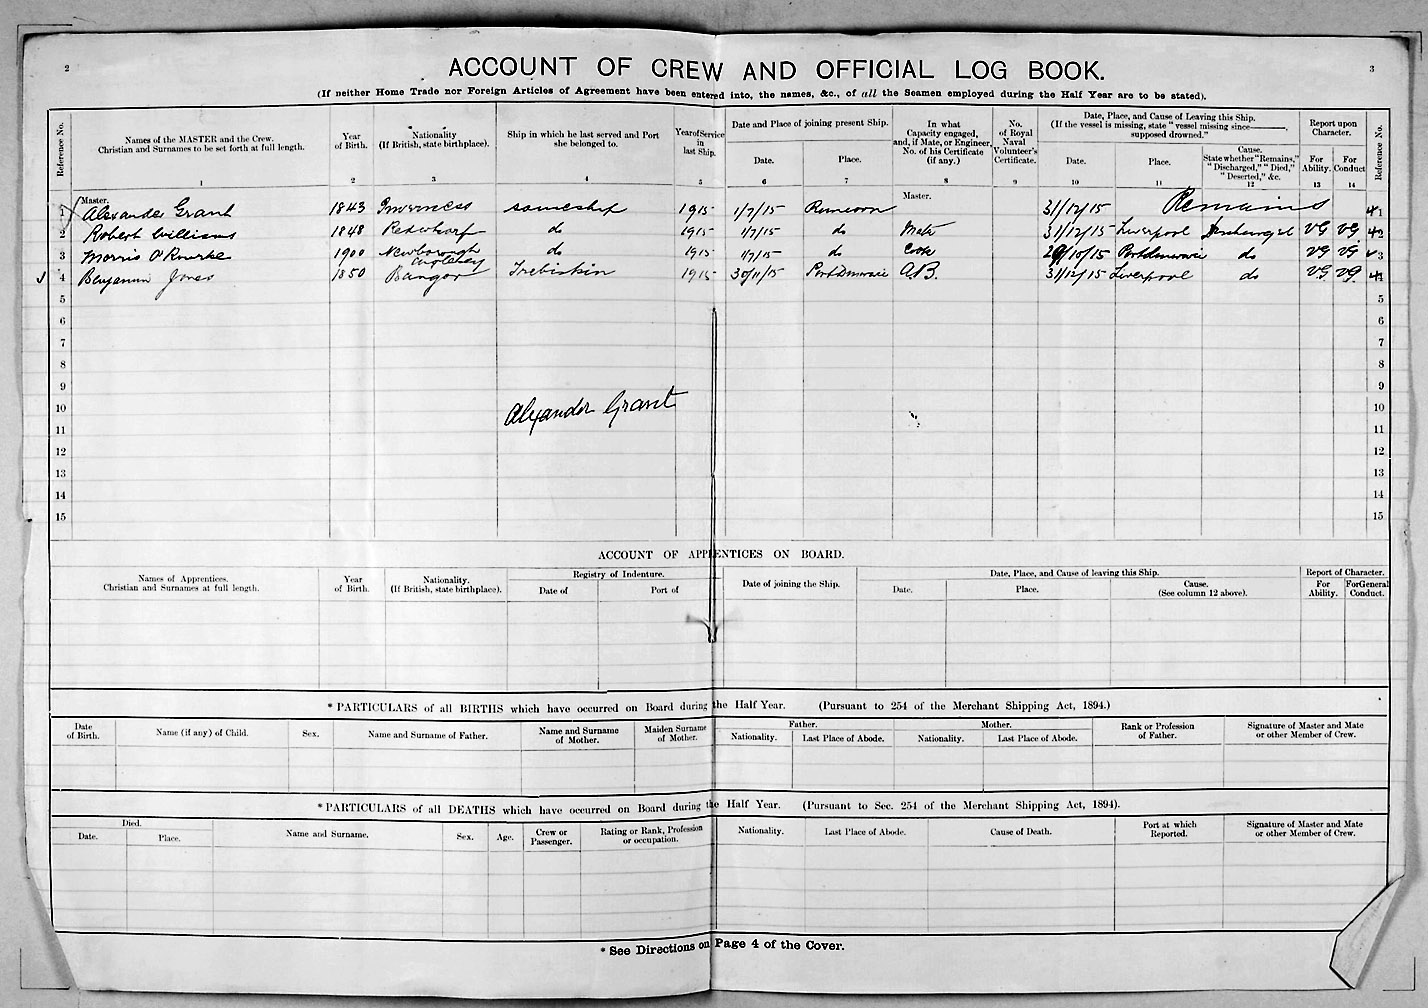 2
3
ACCOUNT OF CREW AND OFFICIAL LOG BOOK.
(If neither Home Trade nor Foreign Articles of Agreement have been entered into, the names, &c., of all the Seamen employed during the Half Year are to be stated).
Reference No. Names of the MASTER and the Crew. Christian and Surnames to be set forth at full length. Year of Birth. Nationality (If British, state birthplace). Ship in which he last served and Port she belonged to. Year of Service in last Ship. Date and Place of joining present Ship. Date. Place. In what Capacity engaged, and, if Mate, or Engineer, No. of his Certificate (if any.) No. of Royal Naval Volunteer's Certificate. Date, Place, and Cause of Leaving this Ship. (If the vessel is missing, state "vessel missing since———, supposed drowned." Date. Place. Cause. State whether "Remains," "Discharged," "Died," "Deserted," &c. Report upon Character. For Ability. For Conduct Reference No.
1 2 3 4 5 6 7 8 9 10 11 12 13 14
Master. Master.
1 Alexander Grant 1843 Inverness sameship 1915 1/7/15 Runcorn 31/12/15 Remains 1
2 Robert Williams 1848 do 1915 1/7/15 do Mate 31/12/15 Liverpool Discharged VG VG 2
3 Morris O'Rourke 1900 Newborough Anglesey do 1915 1/7/15 do Cook 29/10/15 Portdinorwic do VG VG 3
4 Benjamin Jones 1850 Bangor 1915 30/11/15 Portdinorwic A.B. 31/12/15 Liverpool do VG VG 4
5 5
6 6
7 7
8 8
9 9
10 Alexander Grant 10
11 11
12 12
13 13
14 14
15 15
ACCOUNT OF APPRENTICES ON BOARD.
Names of Apprentices. Christian and Surnames at full length. Year of Birth. Nationality. (If British, state birthplace). Registry of Indenture. Date of Port of Date of joining the Ship. Date, Place, and Cause of leaving this Ship. Date. Place. Cause. (See column 12 above). Report of Character. For Ability. For General Conduct.
* PARTICULARS of all BIRTHS which have occurred on Board during the Half Year. (Pursuant to 254 of the Merchant Shipping Act, 1894.)
Date of Birth. Name (if any) of Child. Sex. Name and Surname of Father. Name and Surname of Mother. Maiden Surname of Mother. Father. Nationality. Last Place of Abode. Mother. Nationality. Last Place of Abode. Rank or Profession of Father. Signature of Master and Mate or other Member of Crew.
* PARTICULARS of all DEATHS which have occurred on Board during the Half Year. (Pursuant to Sec. 254 of the Merchant Shipping Act, 1894).
Died. Date. Place. Name and Surname. Sex. Age. Crew or Passenger. Rating or Rank, Profession or occupation. Nationality. Last Place of Abode. Cause of Death. Port at which Reported. Signature of Master and Mate or other Member of Crew.
* See Directions on Page 4 of the Cover.